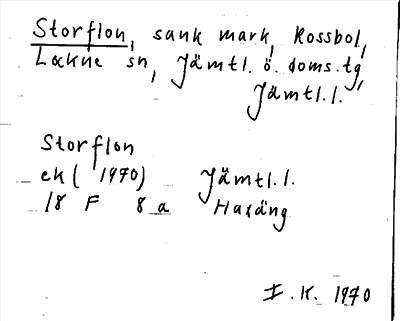 Storflon, sank mark, Rossbol,
Lockne sn, Jämtl. ö. doms.tg,
Jämtl.l.
Storflon
ek( 1970) Jämtl.l.
18 F 8 a Haxäng
I.K. 1970